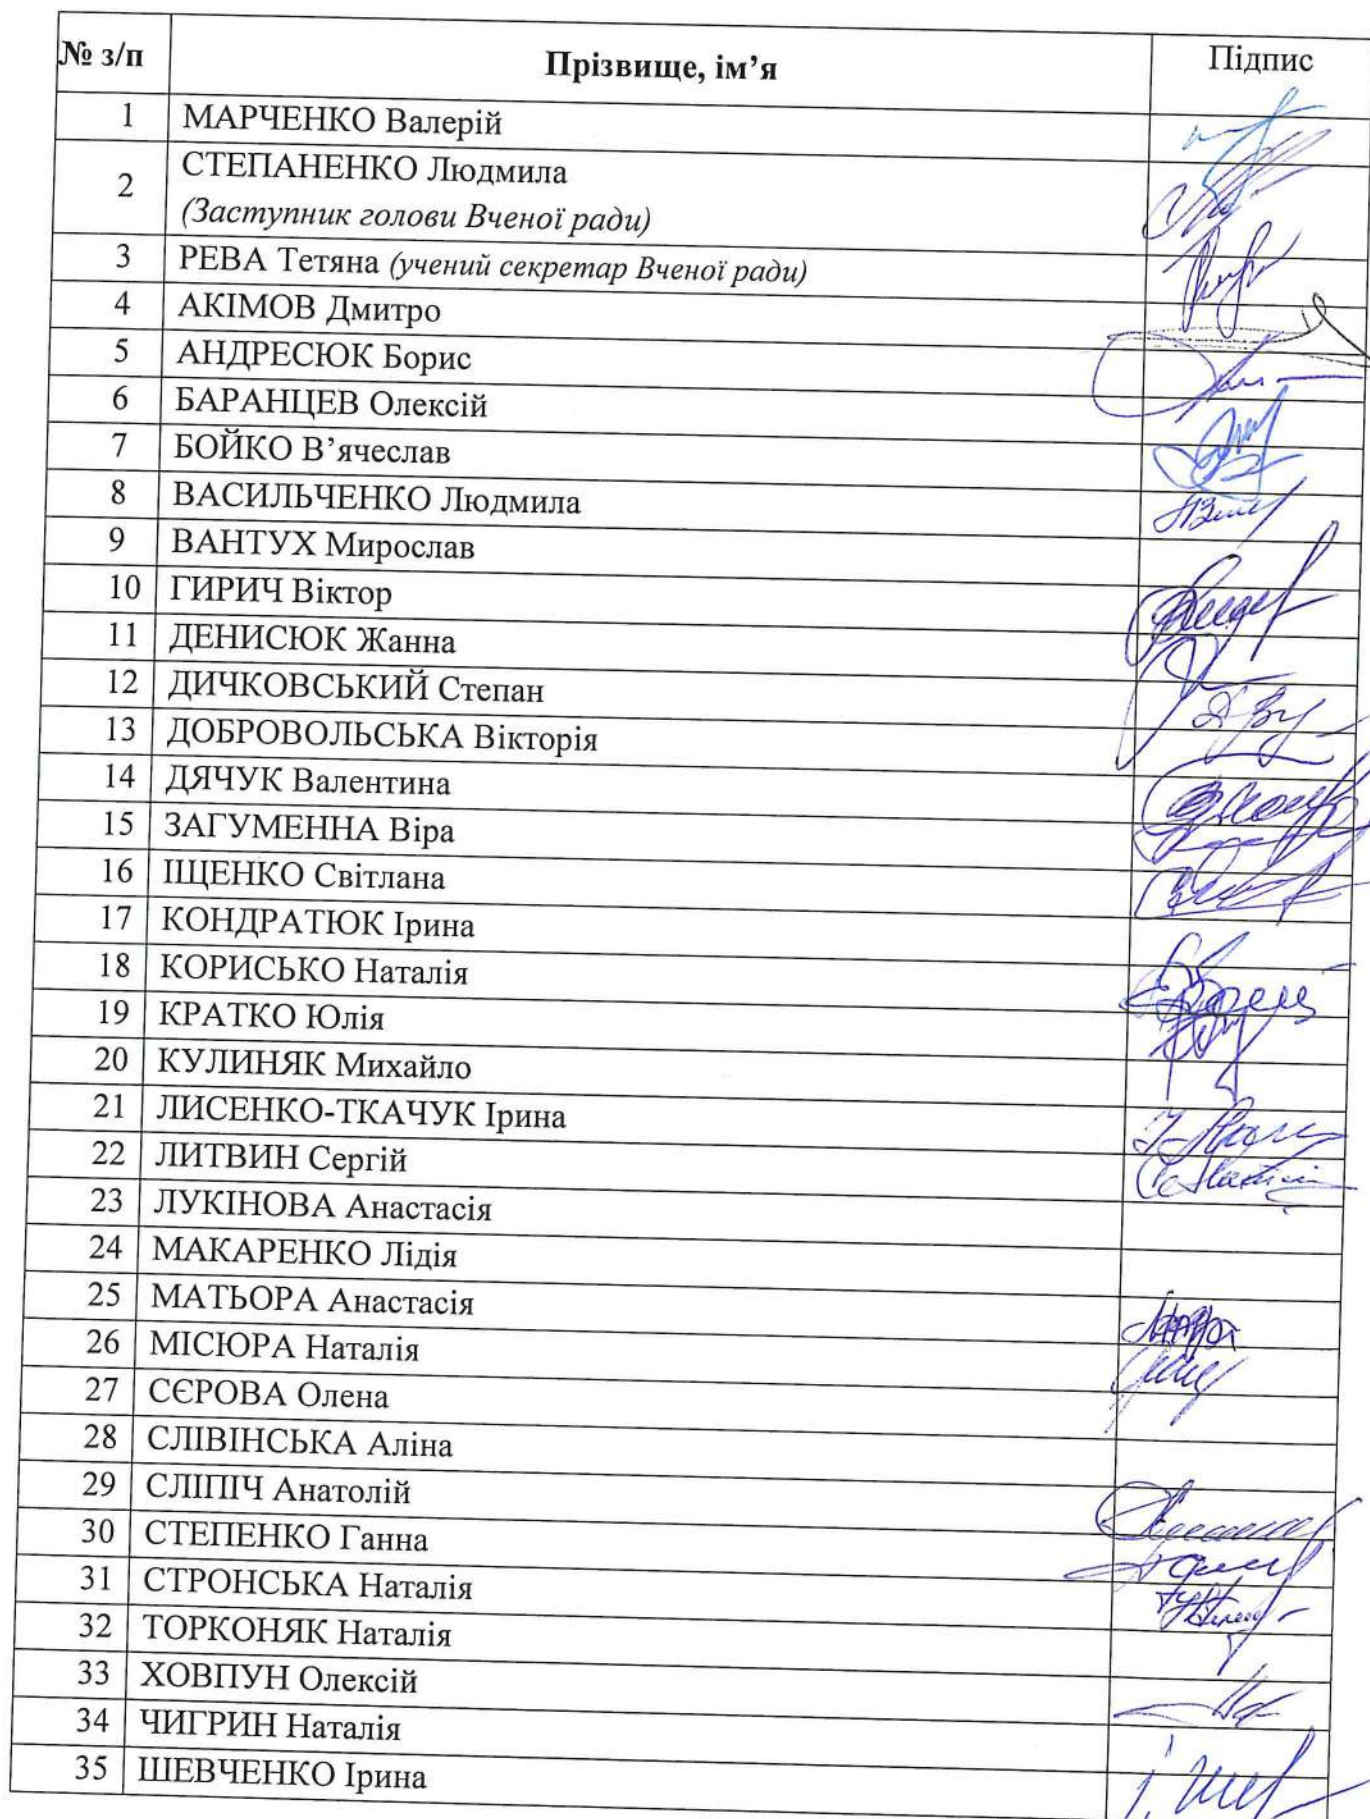 № з/п Прізвище, ім’я Підпис
1 МАРЧЕНКО Валерій
2 СТЕПАНЕНКО Людмила
(Заступник голови Вченої ради)
3 РЕВА Тетяна (учений секретар Вченої ради)
4 АКІМОВ Дмитро
5 АНДРЕСЮК Борис
6 БАРАНЦЕВ Олексій
7 БОЙКО В’ячеслав
8 ВАСИЛЬЧЕНКО Людмила
9 ВАНТУХ Мирослав
10 ГИРИЧ Віктор
11 ДЕНИСЮК Жанна
12 ДИЧКОВСЬКИЙ Степан
13 ДОБРОВОЛЬСЬКА Вікторія
14 ДЯЧУК Валентина
15 ЗАГУМЕННА Віра
16 ІЩЕНКО Світлана
17 КОНДРАТЮК Ірина
18 КОРИСЬКО Наталія
19 КРАТКО Юлія
20 КУЛИНЯК Михайло
21 ЛИСЕНКО-ТКАЧУК Ірина
22 ЛИТВИН Сергій
23 ЛУКІНОВА Анастасія
24 МАКАРЕНКО Лідія
25 МАТЬОРА Анастасія
26 МІСЮРА Наталія
27 СЄРОВА Олена
28 СЛІВІНСЬКА Аліна
29 СЛІПІЧ Анатолій
30 СТЕПЕНКО Ганна
31 СТРОНСЬКА Наталія
32 ТОРКОНЯК Наталія
33 ХОВПУН Олексій
34 ЧИГРИН Наталія
35 ШЕВЧЕНКО Ірина